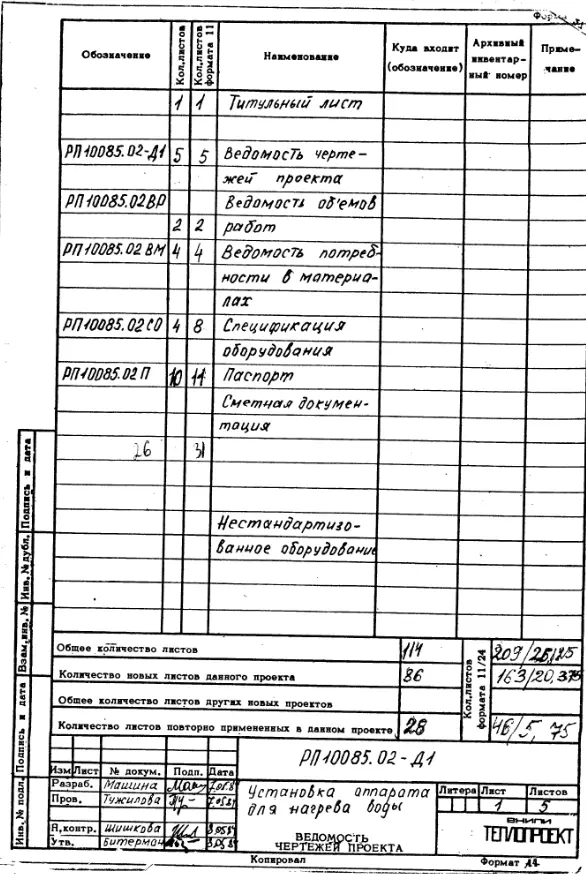 Форма
Обозначение Кол.листов Кол.листов формата 11 Наименование Куда входит (обозначение) Архивный инвентар-ный номер Приме-чание
1 1 Титульный лист
РП10085.02-Д1 5 5 Ведомость черте-
жей проекта
РП10085.02ВР Ведомость объемов
2 2 работ
РП10085.02ВМ 4 4 Ведомость потреб-
ности в материа-
лах
РП10085.02СО 4 8 Спецификация
оборудования
РП10085.02П 10 11 Паспорт
Сметная докумен-
тация
26 31
Нестандартизо-
ванное оборудование
Инв.№ подл. Подпись и дата Взам.инв.№ Инв.№дубл. Подпись и дата
Общее количество листов 114
Количество новых листов данного проекта 86
Общее количество листов других новых проектов
Количество листов повторно примененных в данном проекте 28
Кол.листов формата 11/24
163/20,375
46/5,75
РП10085.02-Д1
Изм Лист № докум. Подп. Дата
Разраб. Машина
Пров. Тужилова
Н.контр. Шишкова
Утв. Битерман
Установка аппарата
для нагрева воды
ВЕДОМОСТЬ
ЧЕРТЕЖЕЙ ПРОЕКТА
Литера Лист Листов
1 5
ВНИПИ
ТЕПЛОПРОЕКТ
Копировал Формат